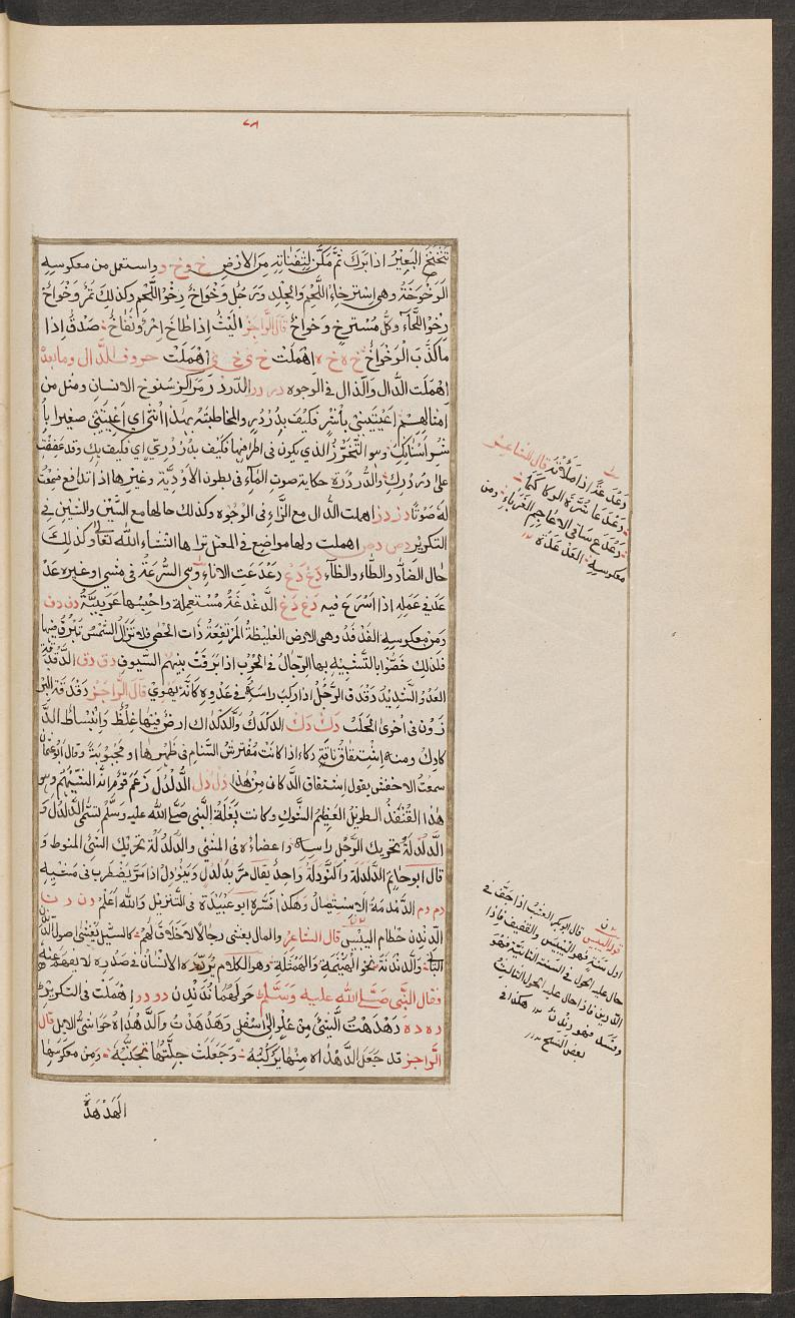 ٧٨
تَنَخْنَخَ البَعِيْرُ اذا بَرَكَ ثمَّ مَكَّنَ لِثَفِنَاتِهِ مِنَ الارْضِ خ و خ و واستعمل من معكوسه
الوَخْوَخَةُ وهى اسْتِرْخاءُ اللَّحْمِ والجِلْدِ ورَجُلٌ وَخْوَاخٌ رِخْوُ اللَّحْمِ وكذلِكَ تَمْرٌ وَخْوَاخٌ
رِخْوُ اللِّحَآءِ وكلُّ مُسْتَرْخٍ وَخواخٌ قال الراجز صَدْقٌ اذا
مَا كَذَّبَ الوَخْوَاخُ خ ه خ ه اهْمِلَتْ خ ى خ ى اُهْمِلَتْ حروف الدَّال وما بعدها
اُهْمِلَت الدَّال والذال فى الوجوه د ر د ر الدَرْدَرُ مَرَاكِزُ سُنُوخِ الاسنان ومثل من
امثالهم اَعْيَيْتِنِى بِاُشُرٍ فكَيْفَ بِدُرْدُرٍ والمخاطبَة بهذا اُنْثَى اى اَعْيَيْتِنِى صغيرا باُ
شُرِ اَسْنَانِكِ وهو التَّحَزُّزُ الذي يكون فى اطرافها فكَيْفَ بِدُرْدُرٍ اى فكيف بك وقد
على دردرك والدردرة حكاية صوت المآء فى بطون الاَوْدِيَة وغيرها اذا تدافع فسمعت
لهُ صَوْتًا د ز د ز اهملت الدال مع الزَّاء فى الوجوه وكذلك حالها مع السِّيْن والشِّيْن فى
التكرير د ص د ص اهملت ولها مواضع فى المعتل تراها انشاء الله تعالى وكذلك
حال الضَّاد والطَّاء والظَّاء دَعْ دَعْ دَعْدَعتِ الاناء وهى السُّرعَةُ فى مشى او غيره عَدْ
عَدَ فى عَمَلِه اذا اَسْرَعَ فيه دَغ دَغ الدَّغْدَغَةُ مُسْتعملة واحْسِبُها عَرَبِيَّةً د ف د ف
ومن معكوسه الفَدْفَدُ وهى الارض الغليظةُ المُرْتفِعَةُ ذَات الحَصَى فلا تَزَالُ الشَّمْسُ تَبْرُقُ فيها
فلذلك خَصُّوا بالتَّشْبِيْهِ بها الرِّجالُ فى الحَرْب اذا بَرَقَتْ بينهم السُّيوف د ق د ق الدَّقْدَقَةُ
العَدْوُ الشديد دَقْدَقَ الرَّجُلُ اذا ركِبَ راسَهُ فى عَدْوِه كاَنَّه يَهْوِى قال الرَّاجز دَقْدَقَةَ البِرْ
ذَوْنِ فى اُخْرَى الجَلَبْ دَكْ دَكْ الدَكْدَكُ والدَّكْدَاكُ ارضٌ فيها غِلَظٌ وانْبِسَاطٌ الدَّ
كادِكُ ومنه اشْتِقَاقُ ناقَةٍ دكّاء اذا كانت مُفْتَرِشةُ السَّنام فى ظهرها او مَجْبُوبَتَهُ وقال ابو عثمان
سمعتُ الاخفش يقول اشتقاق الدَّكان مِنْ هذا دَلْ دَلْ الدُّلْدُلُ زَعَم قوم انَّه الشَّيْهَمُ وهو
هذا القُنْفُذُ الطويل العَظِيمُ الشَّوك وكانت بَغْلَةُ النَّبى صَلَّى الله عليه وسلَّم تُسَمَّى الدُّلْدُلُ وَ
الدَّلْدَلَةُ تحْرِيك الرَّجُلِ راسَه واعضاءَه فى المشى والدَّلْدَلَة تحريك الشَّئ المنوط وَ
قال ابو حاتم الدَّلْدَلَة والنَّوْدَلَةُ واحدٌ يقال مَرَّ يُدَلْدِلُ ويُنَوْدِلُ اذا مَرَّ يَضْطَرِب فى مَشْيِه
د م د م الدَّمْدَمَةُ الاِسْتِئْصالُ وهكذا فَسَّره ابو عُبَيْدَة فى التَّنْزِيل والله اَعْلَمُ د ن د ن
الدِّنْدِن حُطَام اليَبِيْس قال الشاعر والمال يغشى رجالًا لاخَلَاقَ لَهُمْ كالسَّيْل يَغْشَى اصولَ الدِّنْدِنِ
البَالِى والدَّنْدَنَةُ نحْوَ الهَيْنَمَةِ والهَتْمَلَة وهو الكلام يُرَدِّدُه الانْسَانُ فى صَدْرِه لا يفهم عنه
فقال النَّبى صلى الله عليه وسلَّم حَوْلَهُمَا نُدَنْدِنُ د و د و اهْمَلَت فى التَّكْرِيْرِ
د ه د ه دَهْدَهْتُ الشَّيئَ مِنْ عُلْوٍ الى اسْفَل وهَدْهَدْتُ والدَّهْدَاهُ حَواشِى الابل قال
الرَّاجز قد جَعَلَ الدَّهْدَاه منها يَرْكَبُهْ وَجَعَلَتْ جِلَّتُهَا تَجَنَّبُهْ ومن معكوسها
الهَدْهَدَةُ
دَعْدَعَةً اذا مَلَأْتَهُ قال الشاعر
فدَعْدَعَا سُرَّة الرَكَاءِ كَمَا
دَعْدَعَ ساقى الاَعَاجِمِ الغَرَبَا ومن
معكوسه العَدْعَدَة
قوله اليبيس قال ابو بكر العشب اذا جَفَّ فى
اول سَنَةٍ فهو اليَبِيْسُ والقَفِيْفُ فاِذا
حال عليه الحَول فى السَّنة الثانية فهو
الدّرِين فاذا حال عليه الحول الثالثُ
وفَسَد فهو دِنْدِنٌ هكذا فى
بعض النسخ